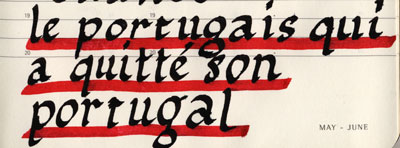 19 le portugais qui 19
20 a quitté son
portugal
MAY - JUNE